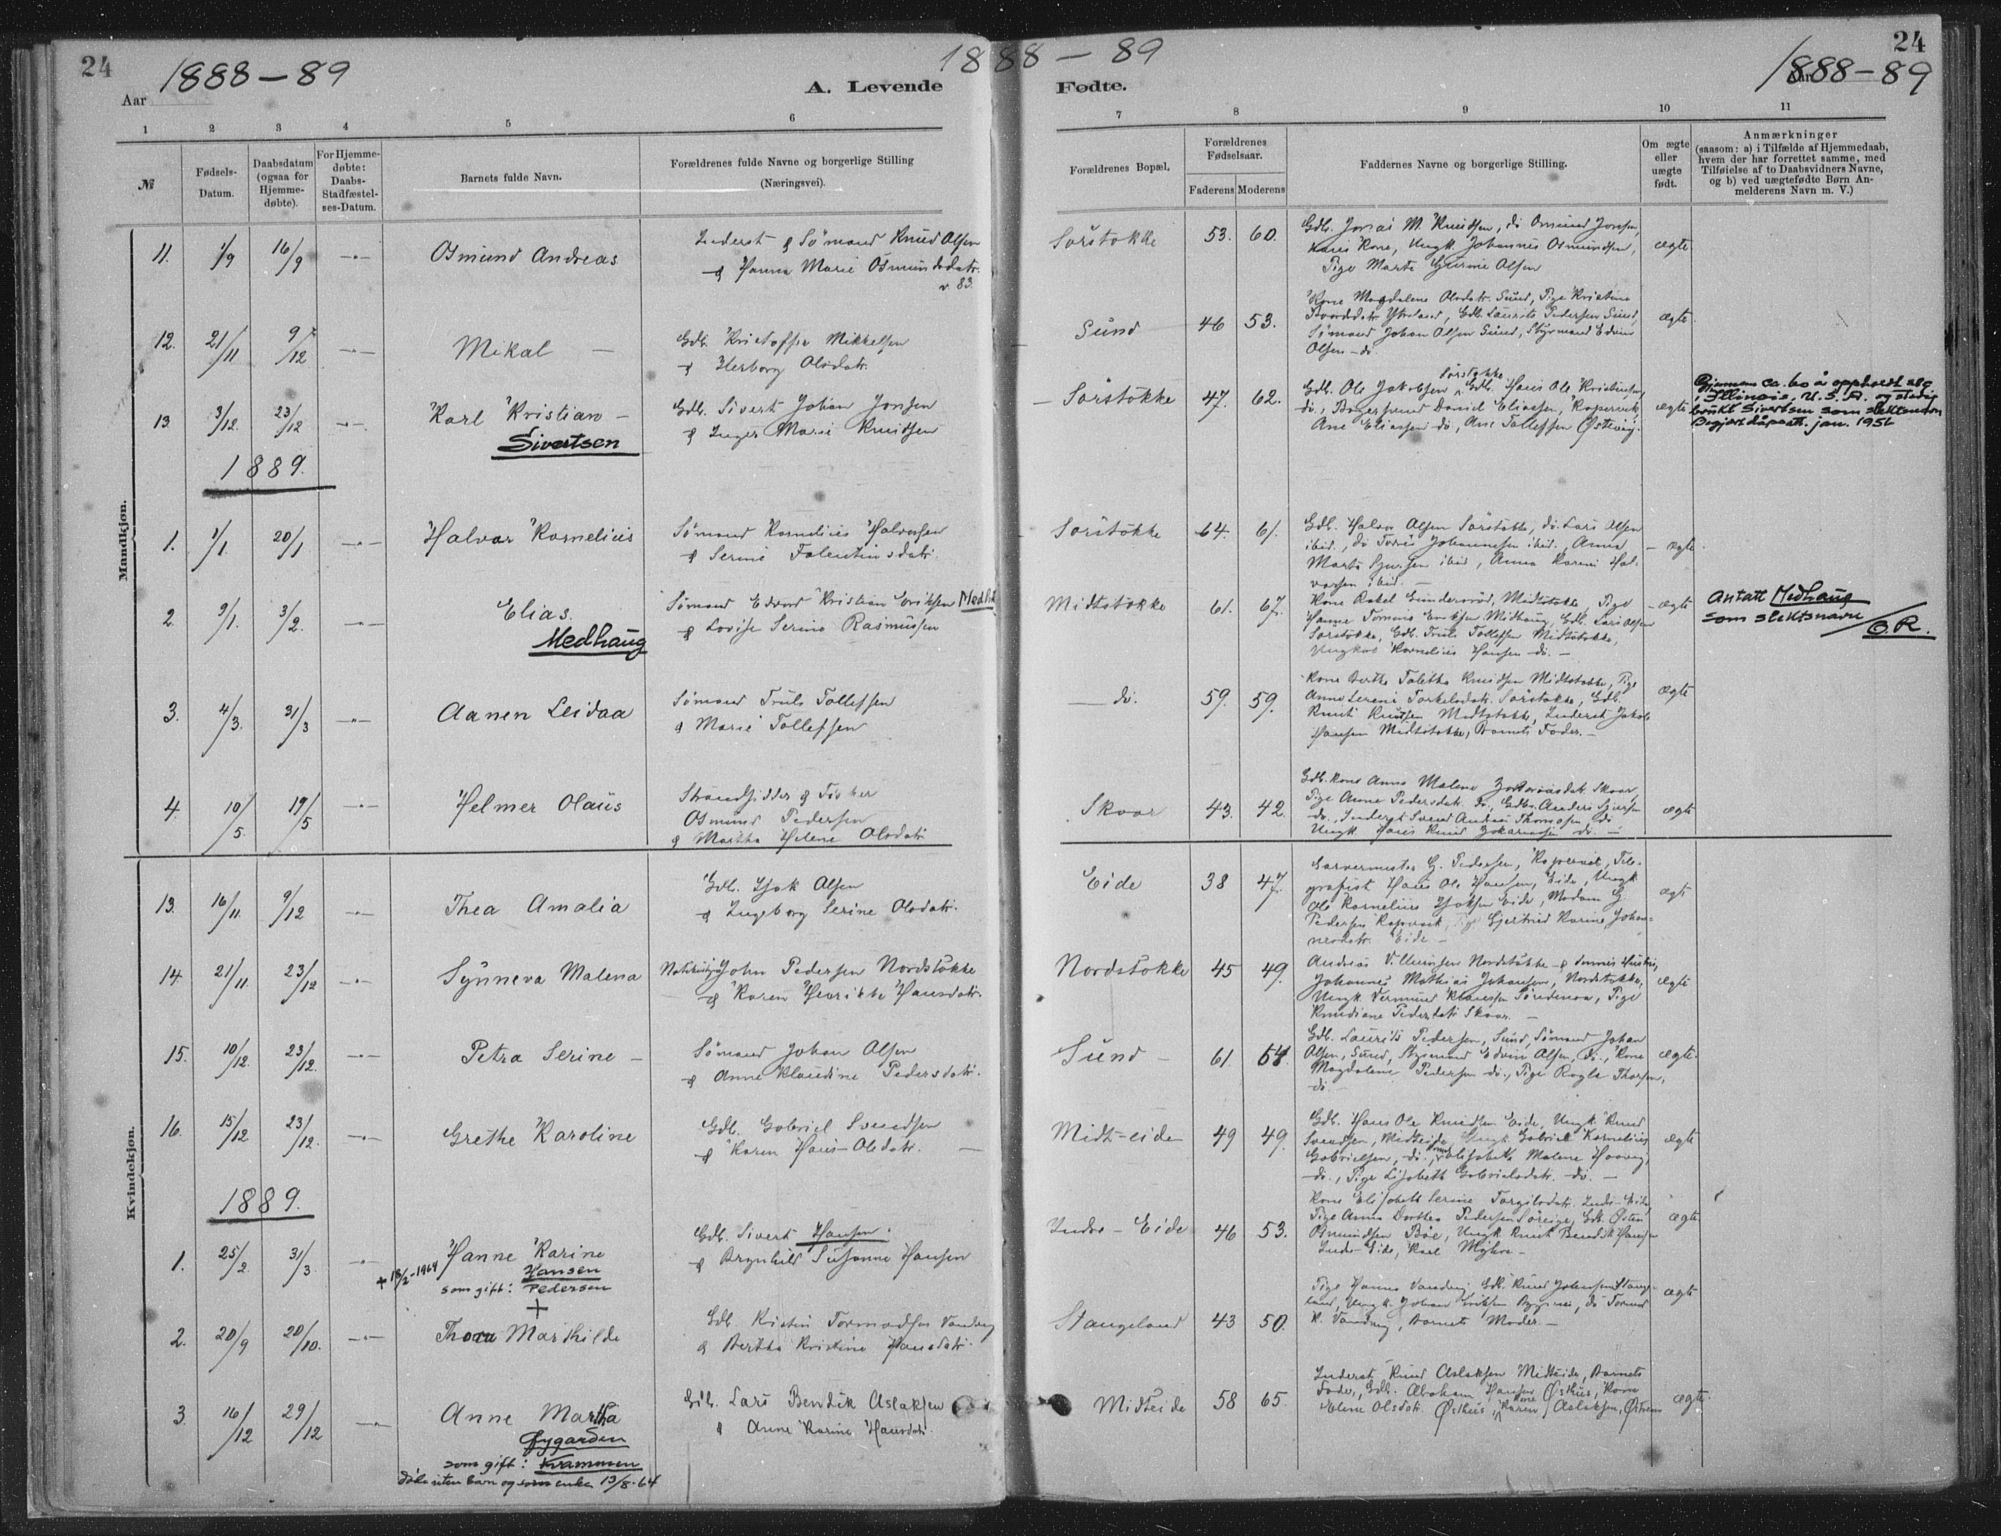 24
1888-89
1888-89
24
1888-89
Aar
A. Levende
Fødte.
Aar
1 2 3 4 5 6
7 8 9 10 11
№
Fødsels-
Datum.
Daabsdatum
(ogsaa for
Hjemme-
døbte).
For Hjemme-
døbte:
Daabs-
Stadfæstel-
ses-Datum.
Barnets fulde Navn.
Forældrenes fulde Navne og borgerlige Stilling
(Næringsvei).
Forældrenes Bopæl.
Forældrenes
Fødselsaar.
Faderens Moderens
Faddernes Navne og borgerlige Stilling.
Om ægte
eller
uægte
født.
Anmærkninger
(saasom: a) i Tilfælde af Hjemmedaab,
hvem der har forrettet samme, med
Tilføielse af to Daabsvidners Navne,
og b) ved uægtefødte Børn An-
melderens Navn m. V.)
Mandkjøn.
11. 1/9 16/9 Osmund Andreas
Inderst & Sømand Knud Olsen
& Hanna Marie Osmundsdatr.
v. 83.
Sørstokke 53. 60.
Gdb. Jonas M. Knudsen, do Osmund Jonsen,
Kone, Ungk. Johannes Osmundsen,
Pige Marte Gurine Olsen
ægte
12. 21/11 9/12 Mikal
Gdb. Kristoffer Mikkelsen
& Herborg Olsdatr.
Sund 46 53.
Kone Magdalene Olsdatr. Sund, Pige Kristine
Gdb. Laurits Pedersen Sund,
Sømand Johan Olsen Sund, Styrmand Edvin
Olsen do
ægte
13. 3/12. 23/12 Karl Kristian
Sivertsen
Gdb. Sivert Johan Jonsen
& Inger Marie Knudsen
Sørstokke 47. 62.
Sørstokke
Gdb. Ole Jakobsen Gdb. Hans Ole Kristensen,
do., Bogersvend Daniel Eliassen, Kopervik,
Ane Eliassen do, Ane Tollefsen Østevig.
ægte
Gjennem ca. 60 år oppholdt seg
i Illinois, U.S.A. og stadig
brukt Sivertsen som slektsnavn
Begjært dåpsatt. jan. 1956
1889.
1. 1/1. 20/1 Halvar Kornelius
Sømand Kornelius Halvorsen
& Serine Falentinsdatr.
Sørstokke 64. 61.
Gdb. Halvor Olsen Sørstokke, do. Lars Olsen
ibid., do Johannesen ibid., Anna
Marta ibid, Anna Karine Hal-
vorsen ibid.
ægte.
2. 9/1. 3/2. Elias.
Medhaug
Sømand Edvard Kristian Eriksen
& Lovise Serine Rasmussen
Midtstokke 61. 67.
Kone Rakel Gundersrød, Midtstokke, Pige
Hanne Tomine Eriksen Midhaug, Gdb. Lars Olsen
Sørstokke, Gdb. Truls Tollefsen Midtstokke,
Ungkarl Kornelius Hansen do.
ægte
Antatt Medhaug
som slektsnavn
O.R.
3. 4/3. 31/3 Aanen Leidaa
Sømand Truls Tollefsen
& Marie Tollefsen
do. 59. 59.
Kone Berthe Tabitha Knudsen Midtstokke, Pige
Anne Serine Torkelsdatr. Sørstokke, Gdb.
Knut Knutsen Midtstokke, Inderst Jakob
Hansen Midtstokke, Barnets Fader.
ægte
4. 10/5 19/5 Helmer Olaus
Strandsidder & Fisker
Osmund Pedersen
& Martha Helene Olsdatr.
Skaar 43. 42.
Gdb. Kone Anna Malene Skaar,
Pige Anne Pedersdatr. do, Gdb. Anders
do., Inderst Svend Andreas Thomasen do
Ungk. Hans Knud do.
ægte
Kvindekjøn.
13. 16/11. 9/12 Thea Amalia
Gdb. Isak Olsen
& Ingeborg Serine Olsdatr.
Eide 38 47.
Garvermester G. Pedersen, Kopervik, Tele-
grafist Hans Ole Hansen, Eide, Ungk
Ole Kornelius Isaksen Eide, Madam G.
Pedersen Kopervik, Pige Gjertrud Karine Johan-
nesdatr. Eide
ægte
14. 21/11. 23/12 Synneva Malena
John Pedersen Nordstokke
& Karen Henrikke Hansdatr.
Nordstokke 45 49.
Andreas Villumsen Nordstokke & hans Hustru,
Johannes Mathias Johansen, Nordstokke,
Ungk. Vermund Klausen, Pige
Knudiane Pedersdatr Skaar.
ægte
15. 10/12. 23/12. Petra Serine
Sømand Johan Olsen
& Anne Klaudine Pedersdatr.
Sund 61 64.
Gdb. Laurits Pedersen, Sund, Sømand Johan
Olsen, Sund, Styrmand Edvin Olsen, do., Kone
Magdalene Pedersen do., Pige Ragle Thorsen,
do.
ægte.
16. 15/12 23/12. Grethe Karoline
Gdb. Gabriel Svendsen
& Karen Hans-Olsdatr.
Midt-eide 49 49.
Gdb. Hans Ole Knudsen Eide, Ungk. Knud
Svendsen, Midteide, Ungk Gabriel Kornelius
Gabrielsen, do., Kone Elisabeth Malene Haavig,
do., Pige Lisabeth Gabrielsdatr. do.
ægte
1889.
1. 25/2. 31/3. Hanne Karine
+18/2-1964 Hansen
som gift: Pedersen
Gdb. Sivert Hansen.
& Brynhild Susanne Hansen
Indre-Eide 46 53.
Kone Elisabeth Serine Torgilsdatr. Indre-Eide,
Pige Anna Dorthea Pedersen, Gdb. Østen
Osmundsen Bøe, Ungk. Knut Bendik Hansen
Indre-Eide, Karl Myhre
ægte
2. 20/9 20/10. Thora Marthilde
Gdb. Kristen Tormodsen Vandvig
& Bertha Kristine Hansdatr.
Stangeland 43 50.
Pige Hanna Vandvig, Gdb. Knud Johansen Stange-
land, Ungk. Johan Eriksen, do Tormod
K. Vandvig, Barnets Moder.
ægte
3. 16/12 29/12 Anne Martha
Øygarden
som gift: Kvammen
Døde uten barn og som enke 13/8-64
Gdb. Lars Bendik Aslaksen
& Anne Karine Hansdatr.
Midteide 58 65.
Inderst Knud Aslaksen Midteide, Barnets
Fader, Gdb. Abraham Hansen Østhus, Kone
Elene Olsdatr. Østhus, Kone Karen Aslaksen, Østrem
ægte